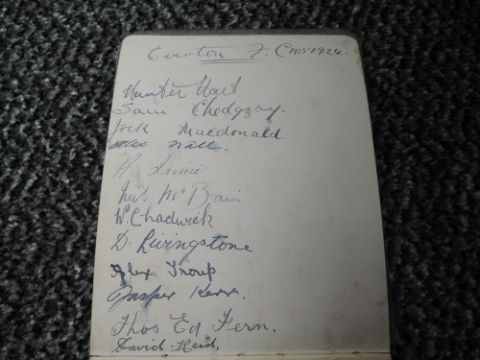 Everton F. C 1923-1924.
Hunter Hart.
Sam Chedgzoy.
Jock Macdonald
Alex Wall.
R. Irvine
Neil McBain
W. Chadwick
D. Livingstone
Alex Troup
Jasper Kerr.
Thos Ed Fern.
David Reid.